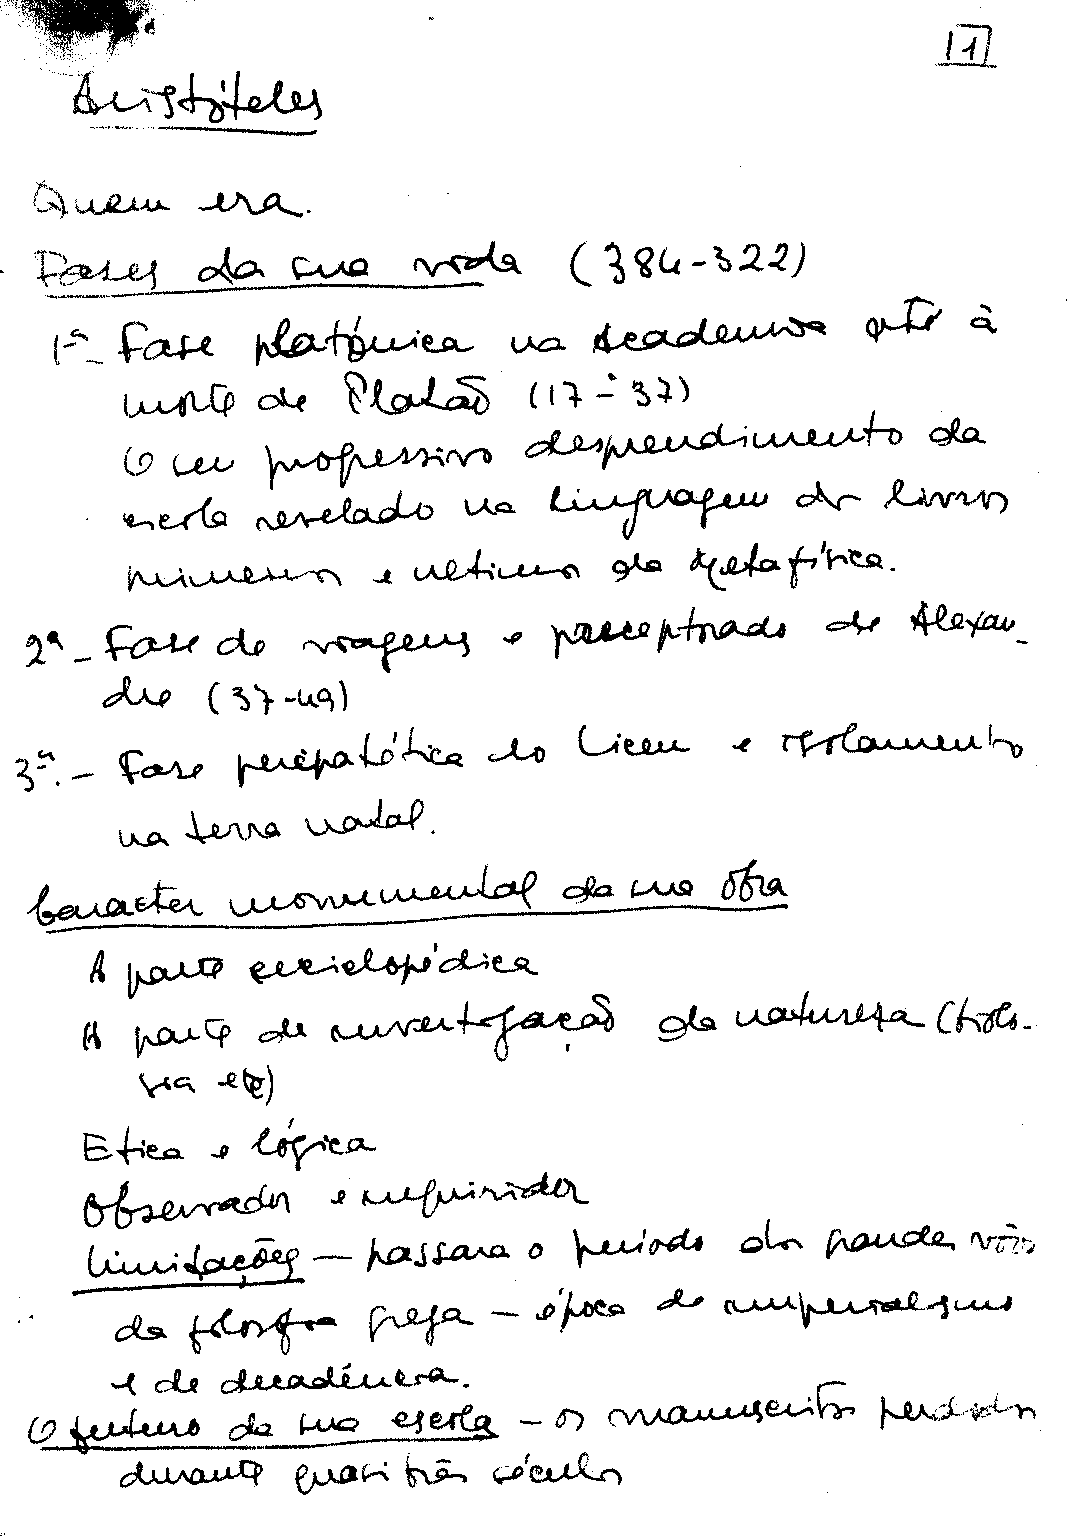 1
Aristóteles
Quem era.
Fases da sua vida (384-322)
1ª- Fase platónica na Academia até à
morte de Platão (17-37)
O seu progressivo desprendimento da
escola revelado na linguagem dos livros
primeiros e ultimos da Metafísica.
2ª- Fase de viagens e preceptorado de Alexan-
dre (37-49)
3ª.- Fase peripatética do Liceu e isolamento
na terra natal.
Caracter monumental da sua obra
A parte enciclopédica
A parte de investigação da natureza (biolo-
gia etc)
Etica e lógica
Observador e inquiridor
Limitações - passara o periodo dos grandes vôos
da filosofia grega - época de imperialismo
e de decadência.
O futuro da sua escola - os manuscritos perdidos
durante quasi três séculos